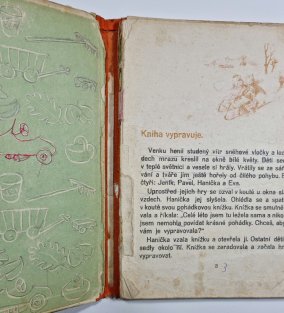 Kniha vypravuje.
Venku honil studený vítr sněhové vločky a
dech mrazu kreslil na okně bílé květy. Děti
v teplé světnici a vesele si hrály. Vrátily se
vání a tváře jim ještě hořely od čilého pohybu.
čtyři: Jeník, Pavel, Hanička a Eva.
Uprostřed jejich hry se ozval v koutě u okna
vzdech. Hanička jej slyšela. Ohlédla se a
v koutě svou pohádkovou knížku. Knížka se
vala a říkala: „Celé léto jsem tu ležela sama a
jsem nemohla povídat krásné pohádky. Chceš,
vám je vypravovala?"
Hanička vzala knížku a otevřela ji. Ostatní
sedly okolo ní. Knížka se zaradovala a začala
vypravovat.
3